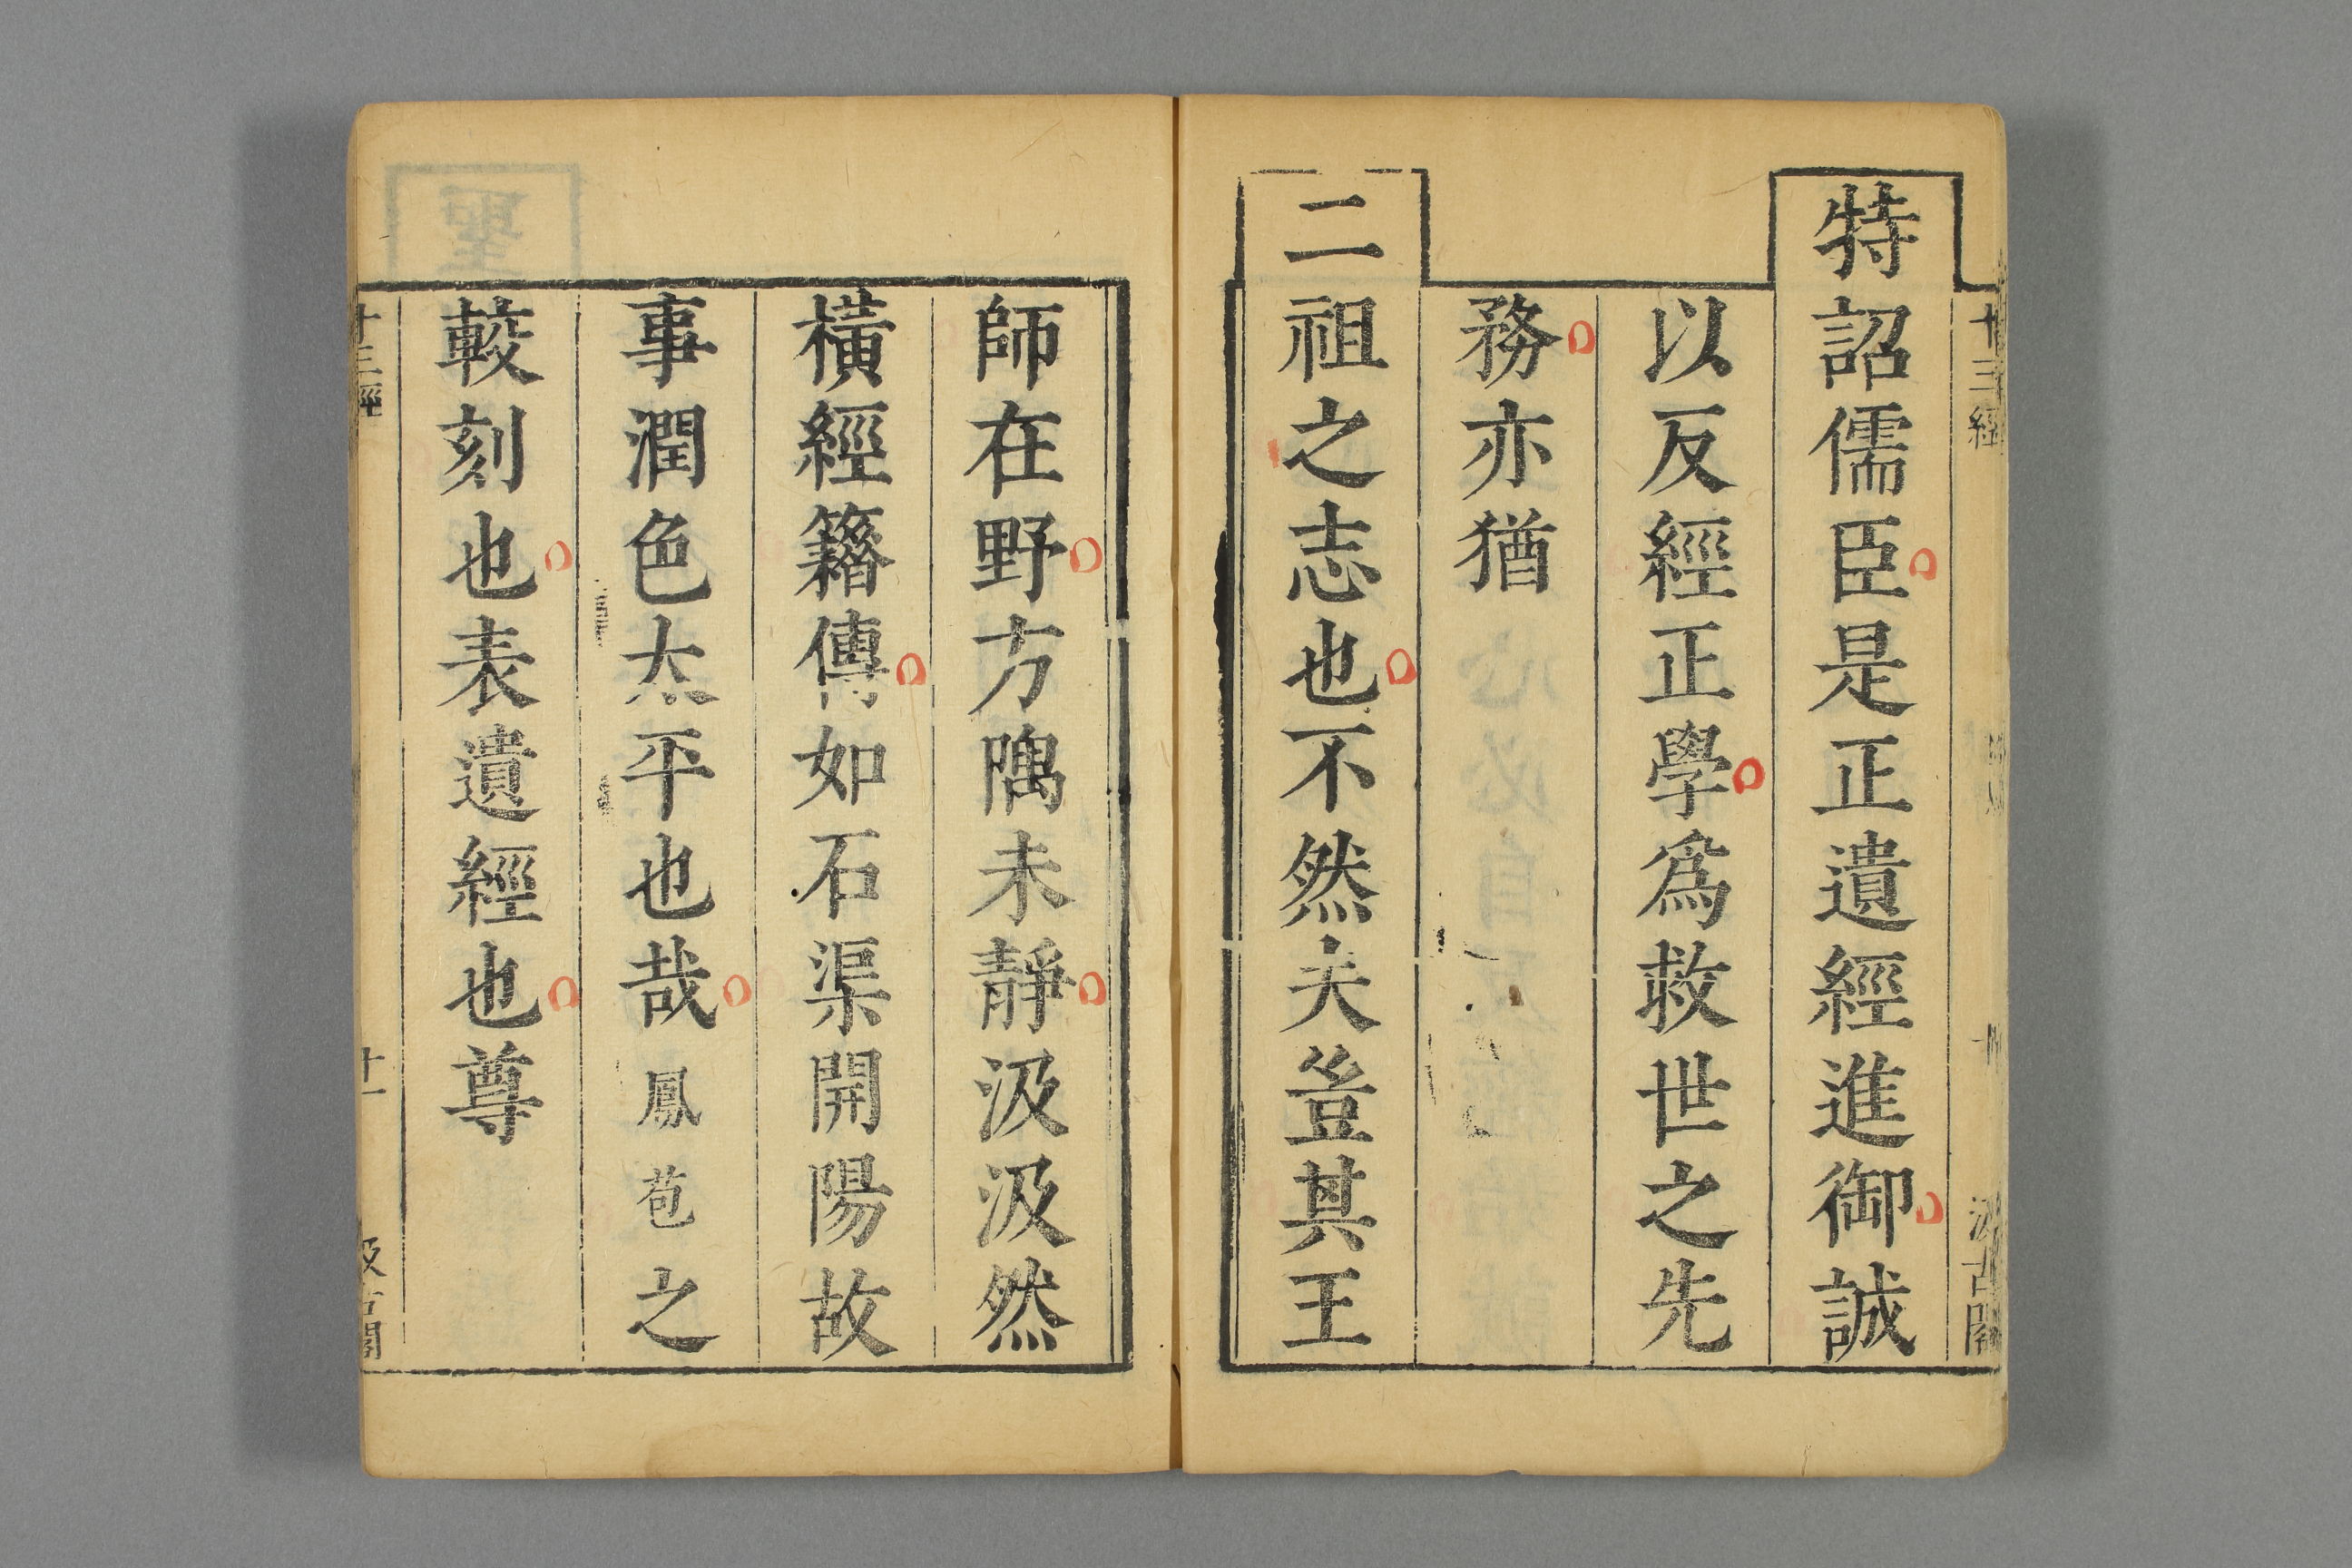 十三經
十
汲古閣
特詔儒臣是正遺經進御誠
以反經正學爲救世之先
務亦猶
二祖之志也不然夫豈其王
師在野方隅未靜汲汲然
橫經籍傳如石渠開陽故
事潤色太平也哉鳳苞之
較刻也表遺經也尊
十三經
十一
汲古閣